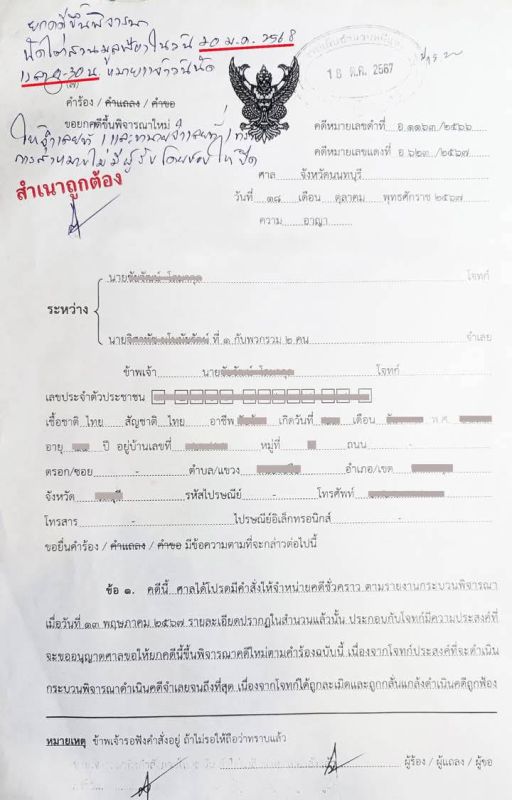 ยกคดีขึ้นพิจารณา
นัดไต่สวนมูลฟ้องในวันที่ 20 ม.ค. 2568
หมายแจ้งวันนัด
18 ต.ค. 2567
คำร้อง / คำแถลง / คำขอ
ขอยกคดีขึ้นพิจารณาใหม่
คดีหมายเลขดำที่ อ ๑๑๖๓/๒๕๖๖
คดีหมายเลขแดงที่ อ ๖๒๓ /๒๕๖๗
สำเนาถูกต้อง
ศาล จังหวัดนนทบุรี
วันที่ ๑๘ เดือน ตุลาคม พุทธศักราช ๒๕๖๗
ความ อาญา
นาย โจทก์
ระหว่าง
นาย ที่ ๑ กับพวกรวม ๒ คน จำเลย
ข้าพเจ้า นาย โจทก์
เลขประจำตัวประชาชน
เชื้อชาติ ไทย สัญชาติ ไทย อาชีพ เกิดวันที่ เดือน พ.ศ.
อายุ ปี อยู่บ้านเลขที่ หมู่ที่ ถนน -
ตรอก/ซอย - ตำบล/แขวง อำเภอ/เขต
จังหวัด รหัสไปรษณีย์ - โทรศัพท์
โทรสาร - ไปรษณีย์อิเล็กทรอนิกส์ -
ขอยื่นคำร้อง / คำแถลง / คำขอ มีข้อความตามที่จะกล่าวต่อไปนี้
ข้อ ๑. คดีนี้ ศาลได้โปรดมีคำสั่งให้จำหน่ายคดีชั่วคราว ตามรายงานกระบวนพิจารณา
เมื่อวันที่ ๑๓ พฤษภาคม ๒๕๖๗ รายละเอียดปรากฏในสำนวนแล้วนั้น ประกอบกับโจทก์มีความประสงค์ที่
จะขออนุญาตศาลขอให้ยกคดีนี้ขึ้นพิจารณาคดีใหม่ตามคำร้องฉบับนี้ เนื่องจากโจทก์ประสงค์ที่จะดำเนิน
กระบวนพิจารณาดำเนินคดีจำเลยจนถึงที่สุด เนื่องจากโจทก์ได้ถูกละเมิดและถูกกลั่นแกล้งดำเนินคดีถูกฟ้อง
หมายเหตุ ข้าพเจ้ารอฟังคำสั่งอยู่ ถ้าไม่รอให้ถือว่าทราบแล้ว
ผู้ร้อง / ผู้แถลง / ผู้ขอ